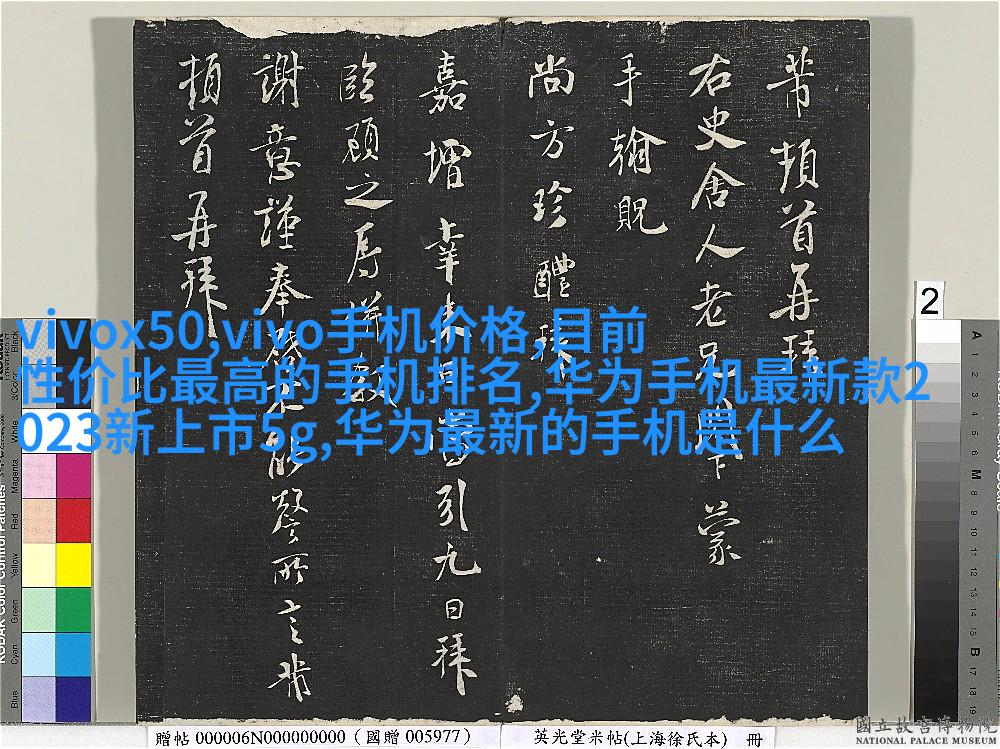 芾頓首再拜
右史舍人老兄下蒙
手翰貺
尚方珍醴拜
嘉增幸引九日拜
臨顧之辱
謝意謹奉不能罄所言芾
頓首再拜
vivox50,vivo手机价格,目前
性价比最高的手机排名,华为手机最新款2
023新上市5g,华为最新的手机是什么
Black
White
Magenta
Red
Yellow
Green
Cyan
Blue
2
A 1 2 3 4 5 6 M 8 9 10 11 12 13 14 15 B 17 18 19
贈帖 000006N000000000 (國贈 005977)
英光堂米帖(上海徐氏本) 冊
國立故宮博物院
NATIONAL PALACE MUSEUM